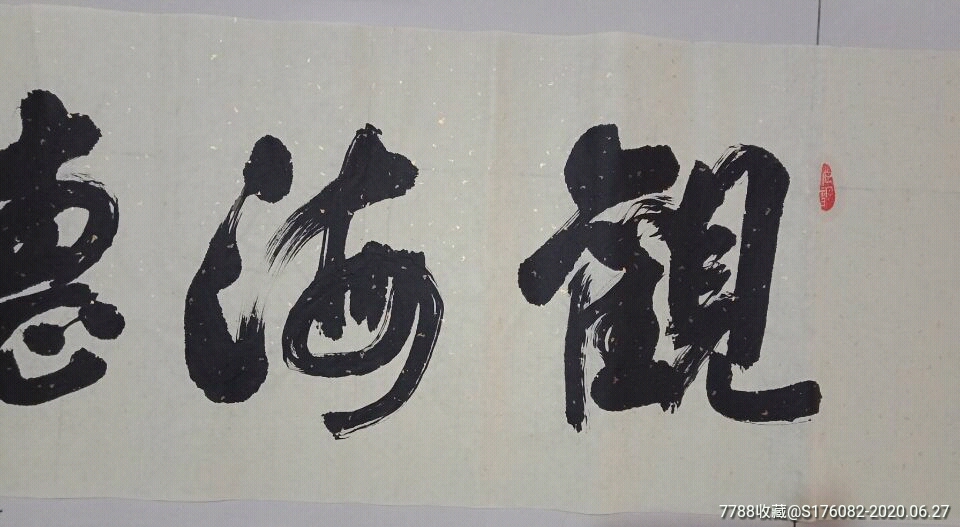 觀海
7788收藏@S176082-2020.06.27